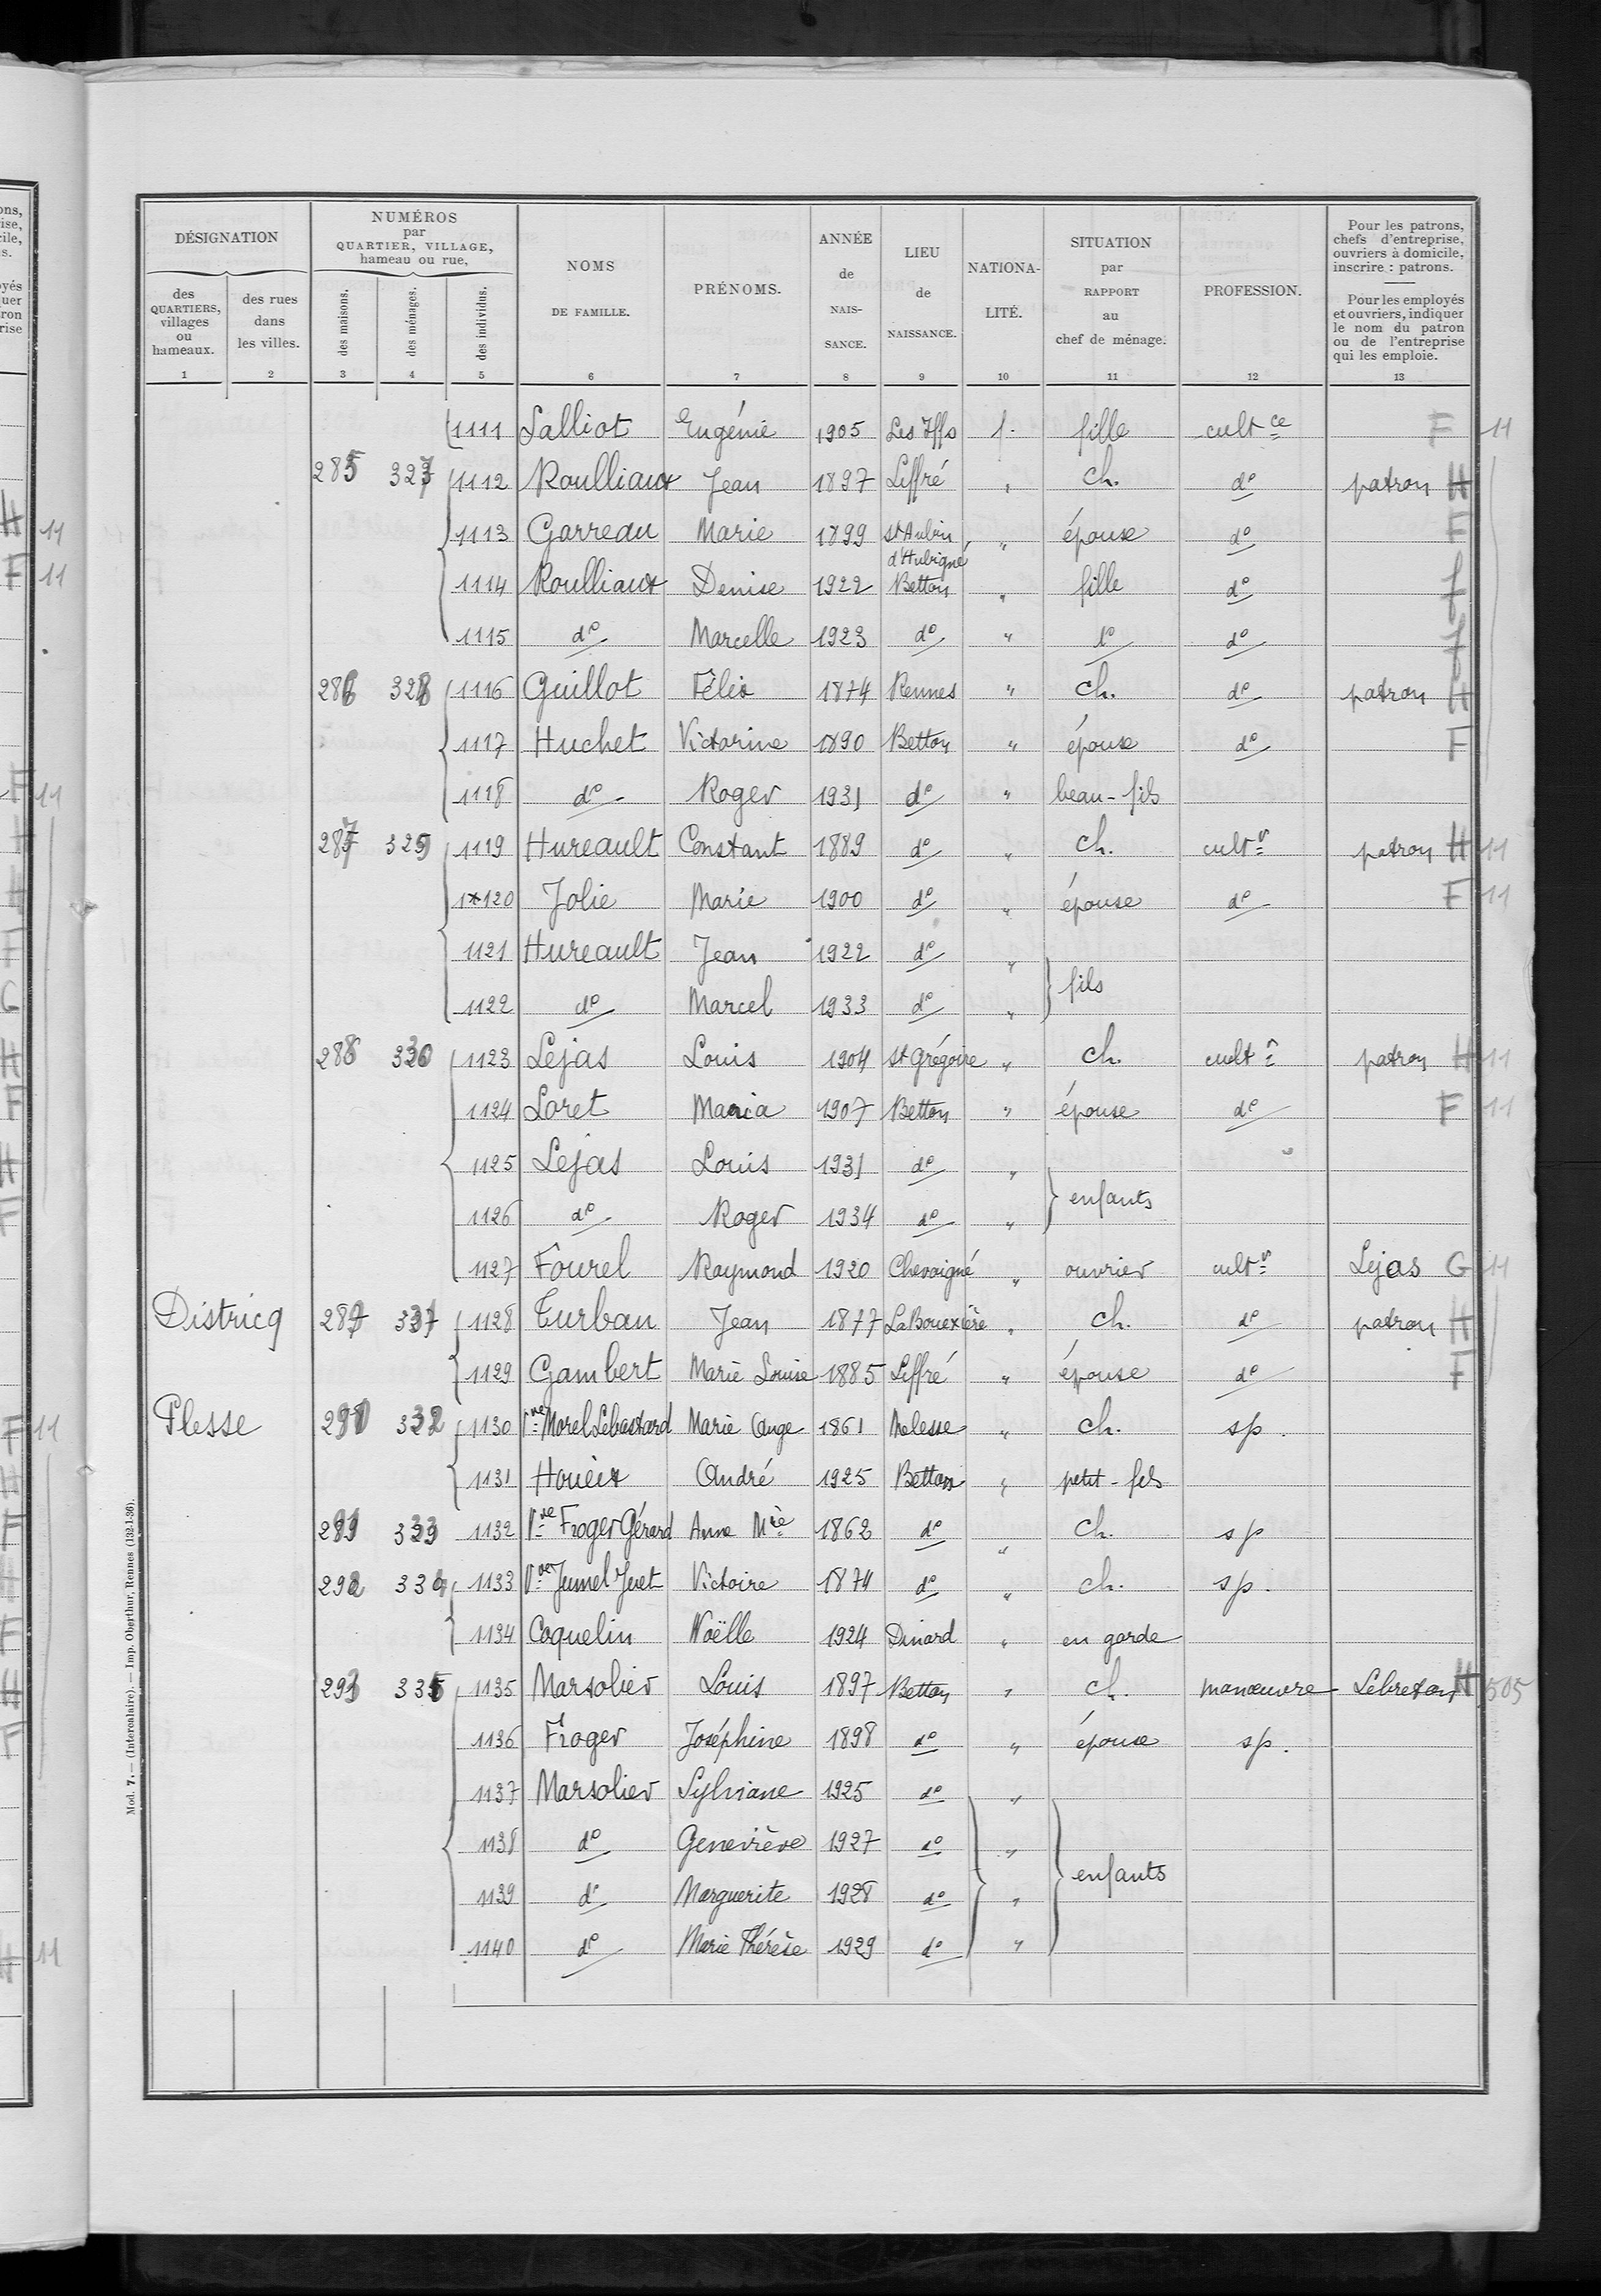 DÉSIGNATION
NUMÉROS
par
QUARTIER, VILLAGE,
hameau ou rue,
NOMS
DE FAMILLE.
PRÉNOMS.
ANNÉE
de
NAIS-
SANCE.
LIEU
de
NAISSANCE.
NATIONA-
LITÉ.
SITUATION
par
RAPPORT
au
chef de ménage.
PROFESSION.
Pour les patrons,
chefs d'entreprise,
ouvriers à domicile,
inscrire : patrons.
Pour les employés
et ouvriers, indiquer
le nom du patron
ou de l'entreprise
qui les emploie.
des
QUARTIERS,
villages
ou
hameaux.
des rues
dans
les villes.
des maisons.
des ménages.
des individus.
1 2 3 4 5 6 7 8 9 10 11 12 13
1111 Salliot Eugénie 1905 Les Iffs f. fille cult ce F 11
285 327 1112 Roulliaux Jean 1897 Liffré " ch. do patron H
1113 Garreau Marie 1899 St Aubin d'Aubigné " épouse do F
1114 Roulliaux Denise 1922 Betton " fille do f
1115 do Marcelle 1923 do " do do f
286 328 1116 Guillot Félix 1874 Rennes " ch. do patron H
1117 Huchet Victorine 1890 Betton " épouse do F
1118 do Roger 1931 do " beau-fils
287 329 1119 Hureault Constant 1889 do " ch. cultr patron H 11
1120 Jolie Marie 1900 do " épouse do F 11
1121 Hureault Jean 1922 do "
fils
1122 do Marcel 1933 do "
288 330 1123 Lejas Louis 1904 St Grégoire " ch. cultr patron H 11
1124 Loret Maria 1907 Betton " épouse do F 11
1125 Lejas Louis 1931 do "
enfants
1126 do Roger 1934 do "
1127 Fourel Raymond 1920 Chevaigné " ouvrier cultr Lejas G 11
Districq 1128 Turban Jean 1877 La Bouexière " ch. do patron H
1129 Gambert Marie Louise 1885 Liffré " épouse do F
Plesse 290 332 1130 Vve Morel Lebastard Marie Ange 1861 Melesse " ch. sp.
1131 Houeix André 1925 Betton " petit-fils
291 333 1132 Vve Froger Gérard Anne Mie 1862 do " ch. sp
292 334 1133 Vve Jumel Juet Victoire 1874 do " ch. sp.
1134 Coquelin Noëlle 1924 Dinard " en garde
293 335 1135 Marsolier Louis 1897 Betton " ch. manœuvre Lebreton H 505
1136 Froger Joséphine 1898 do " épouse sp.
1137 Marsolier Sylviane 1925 do "
1138 do Geneviève 1927 do "
enfants
1139 do Marguerite 1928 do "
1140 do Marie Thérèse 1929 do "
Mod. 7. — (Intercalaire). — Imp. Oberthur, Rennes (132-1-36).